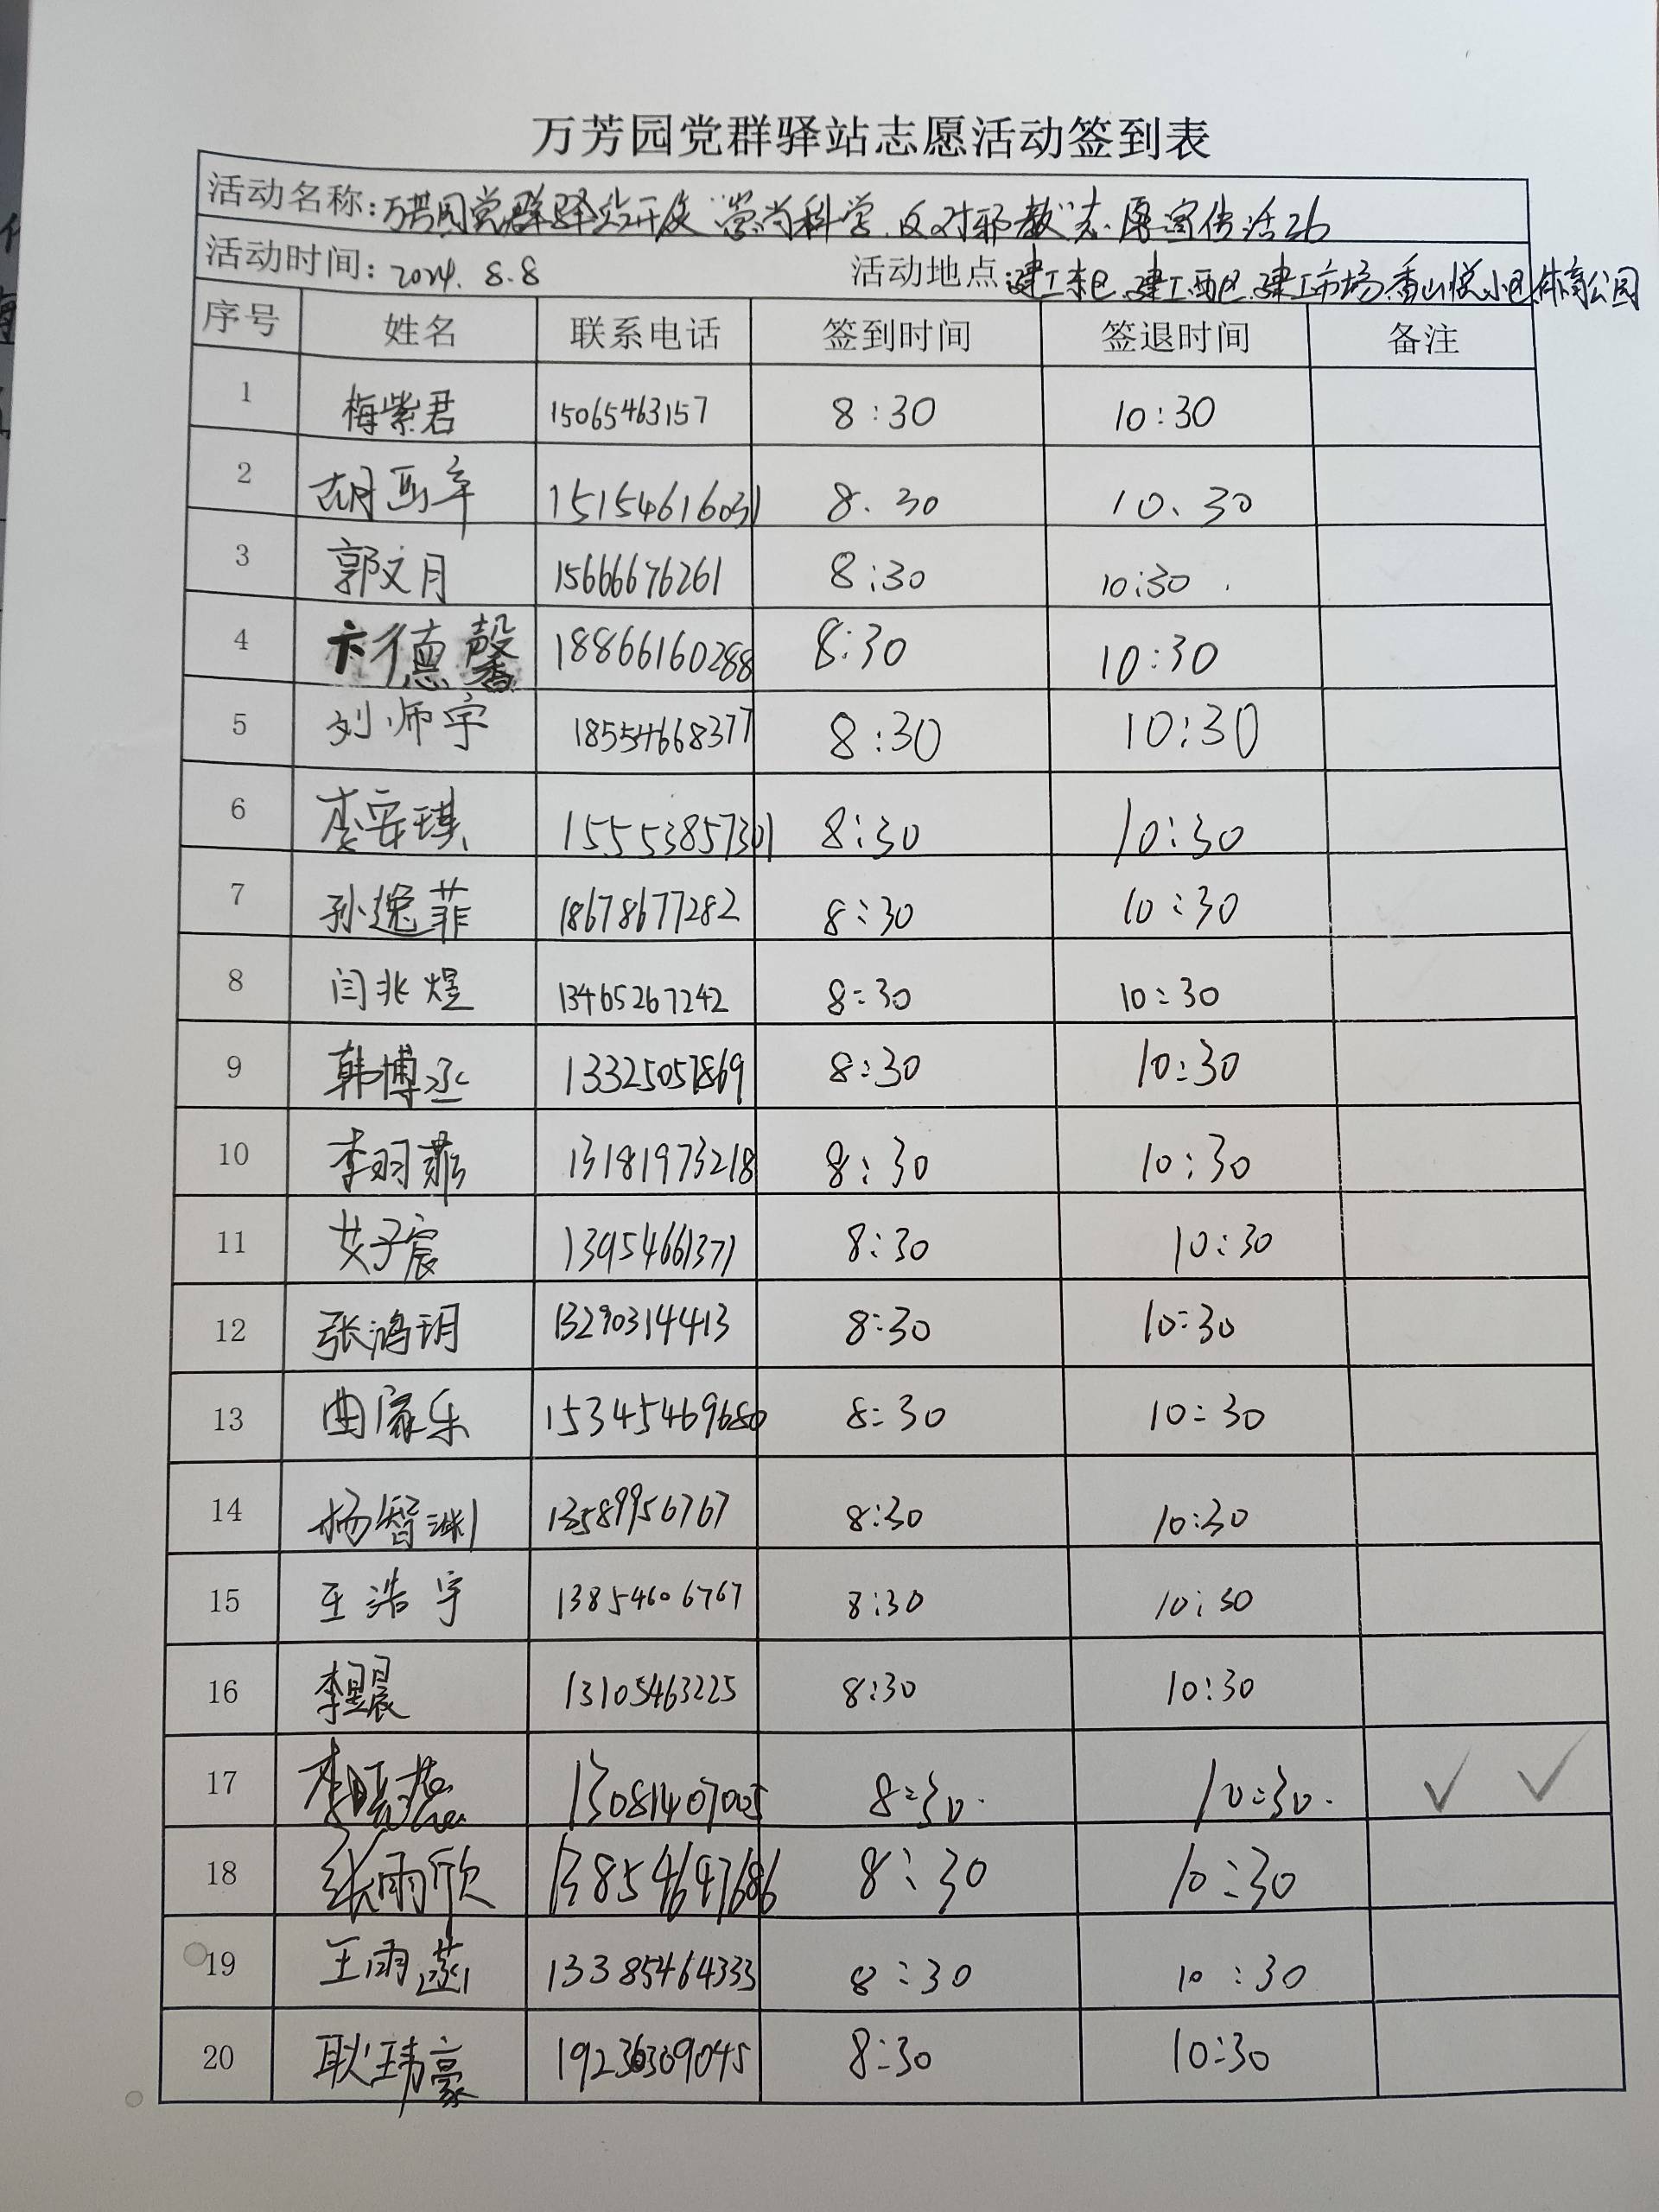 万芳园党群驿站志愿活动签到表
活动名称:万芳园党群驿站开展“崇尚科学,反对邪教”志愿宣传活动
活动时间:2024.8.8 活动地点:建工东区、建工西区、建工市场、香山悦小区、体育公园
序号 姓名 联系电话 签到时间 签退时间 备注
1 梅紫君 15065463157 8:30 10:30
2 胡 15154616031 8.30 10.30
3 郭文月 15666676261 8:30 10:30
4 卞德馨 18866160288 8:30 10:30
5 刘师宇 18554668377 8:30 10:30
6 李安琪 15553857301 8:30 10:30
7 孙逸菲 18678677282 8:30 10:30
8 闫兆煜 13465267242 8:30 10:30
9 韩博丞 13325057869 8:30 10:30
10 李羽菲 13181973218 8:30 10:30
11 子宸 13954661371 8:30 10:30
12 张鸿玥 13290314413 8:30 10:30
13 曲家乐 15345469680 8:30 10:30
14 杨智渊 13589956767 8:30 10:30
15 王浩宇 13854606767 8:30 10:30
16 李昱晨 13105463225 8:30 10:30
17 李 13081407005 8:30. 10:30. ✓ ✓
18 张雨欣 13854647686 8:30 10:30
19 王雨涵 13385464333 8:30 10:30
20 耿玮豪 19236309045 8:30 10:30